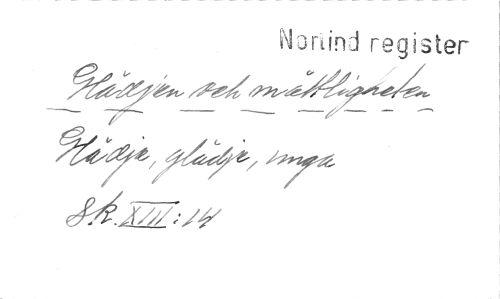 Norlind register
Glädjen och måttligheten
Glädje, glädje, unga
Sk. XIII: 14